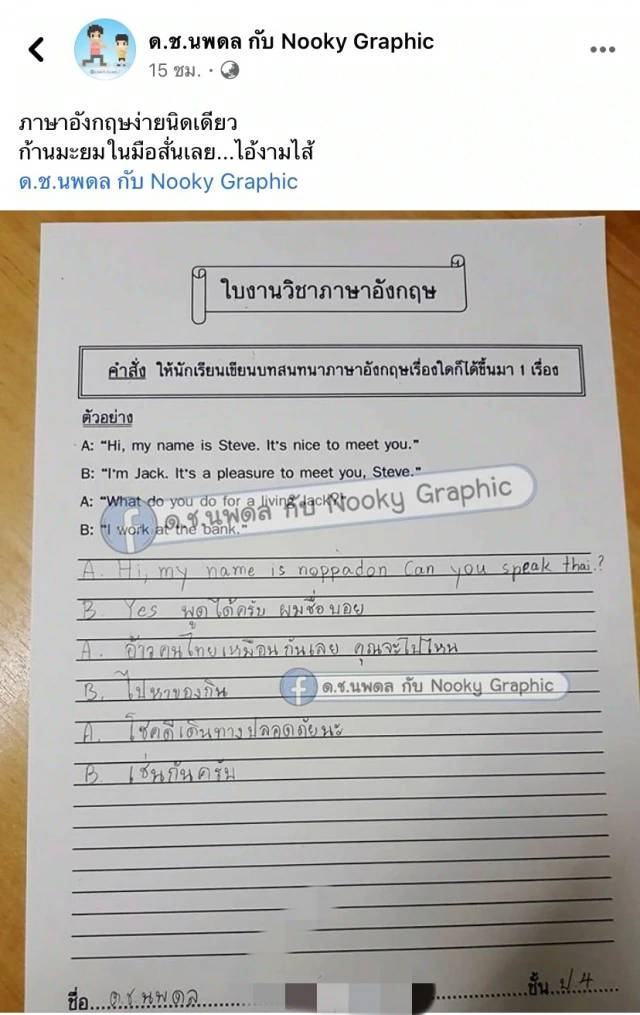 ด.ช.นพดล กับ Nooky Graphic
15 ชม. ·
ภาษาอังกฤษง่ายนิดเดียว
ก้านมะยมในมือสั่นเลย...ไอ้งามไส้
ด.ช.นพดล กับ Nooky Graphic
ใบงานวิชาภาษาอังกฤษ
คำสั่ง ให้นักเรียนเขียนบทสนทนาภาษาอังกฤษเรื่องใดก็ได้ขึ้นมา 1 เรื่อง
ตัวอย่าง
A: "Hi, my name is Steve. It's nice to meet you."
B: "I'm Jack. It's a pleasure to meet you, Steve."
A: "What do you do for a living Jack?"
B: "I work at the bank."
ด.ช.นพดล กับ Nooky Graphic
A. Hi, my name is noppadon Can you speak thai.?
B. Yes พูดได้ครับ ผมชื่อบอย
A. อ้าวคนไทยเหมือนกันเลย คุณจะไปไหน
B. ไปหาของกิน
ด.ช.นพดล กับ Nooky Graphic
A. โชคดีเดินทางปลอดภัยนะ
B เช่นกันครับ
ชื่อ... ด.ช.นพดล ชั้น ป.4